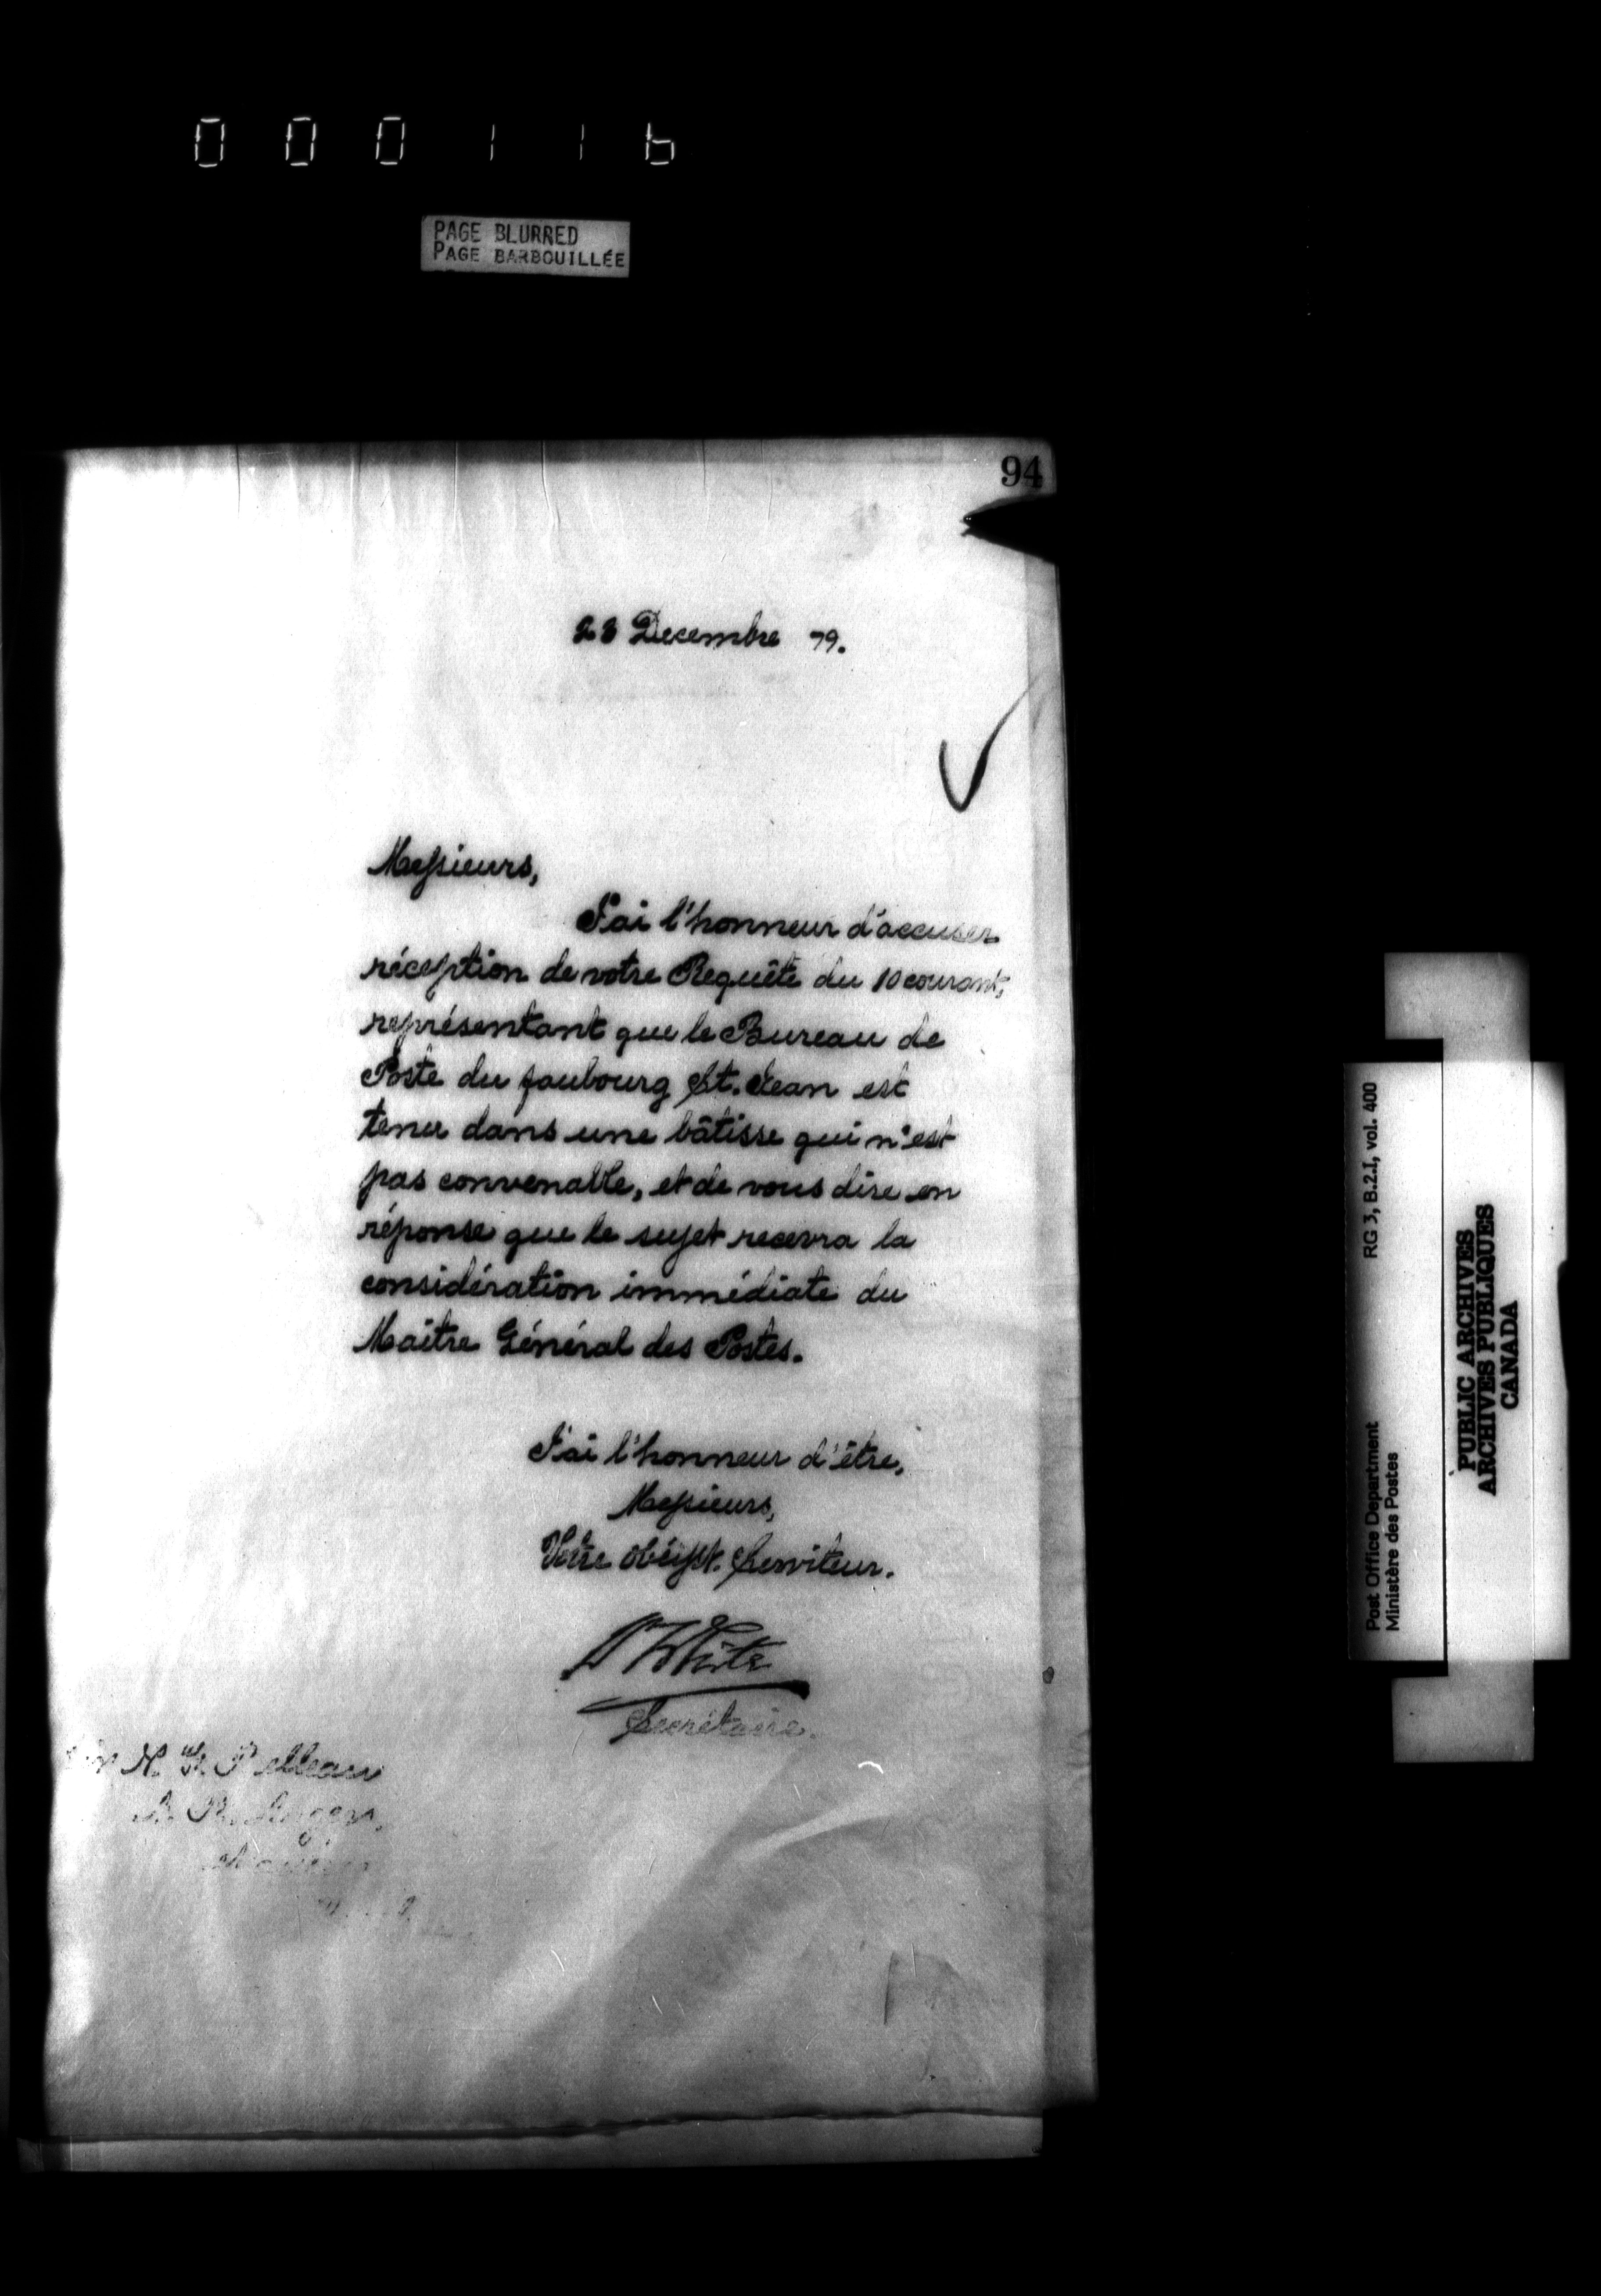 000116
PAGE BLURRED
PAGE BARBOUILLÉE
94
23 Decembre 79.
Messieurs,
J'ai l'honneur d'accuser
réception de votre Requête du 10 courant,
représentant que le Bureau de
Poste du faubourg St. Jean est
tenu dans une bâtisse qui n'est
pas convenable, et de vous dire en
réponse que le sujet recevra la
considération immédiate du
Maître Général des Postes.
J'ai l'honneur d'être,
Messieurs,
Votre obéisst. Serviteur.
W White
Secrétaire.
RG 3, B.2.I, vol. 400
Post Office Department
Ministère des Postes
PUBLIC ARCHIVES
ARCHIVES PUBLIQUES
CANADA